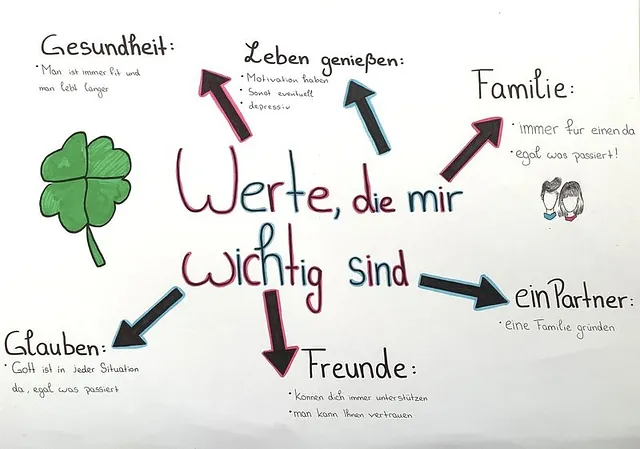 Gesundheit:
• Man ist immer fit und
man lebt länger
Leben genießen:
• Motivation haben
• Sonst eventuell
• depressiv
Familie:
• immer für einen da
• egal was passiert!
Werte, die mir
wichtig sind
ein Partner:
• eine Familie gründen
Glauben:
• Gott ist in jeder Situation
da, egal was passiert
Freunde:
• können dich immer unterstützen
• man kann Ihnen vertrauen